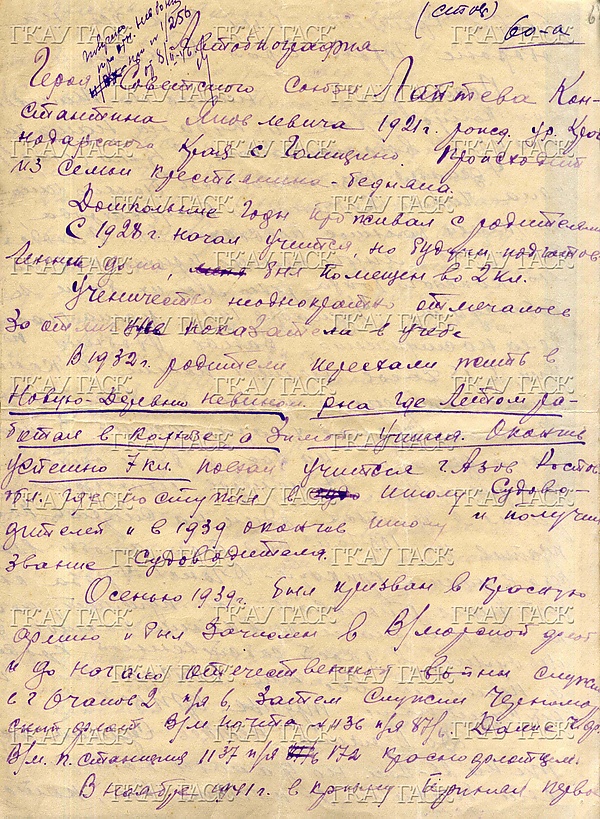 (сетов)
60-а.
Получено
при отн. Невин
№ 1/256
от 8/II-46
Автобиография
Героя Советского Союза Лаптева Кон-
стантина Яковлевича 1921г. рожд. ур. Крас
нодарского Края с. Голицино. Происходит
из семьи крестьянина-бедняка.
Дошкольные годы проживал с родителями
С 1928г. начал учится, но будучи подготов
ленным дома, был помещен во 2 кл.
Ученичество неоднократно отмечалося
За отличные показатели в учебе
В 1932г. родители переехали жить в
Новую-Деревню Невином. рна где Летом ра-
ботал в колхозе, а Зимой учился. Окончив
успешно 7 кл. поехал учится г. Азов Ростов
обл. где поступил в школу Судово-
дителей и в 1939 окончив школу и получил
звание Судоводителя.
Осенью 1939г. был призван в Красную
армию и был Зачислен в В/морской флот
и до начала отечественной войны служил
в г Очаков 2 п/я 6, Затем служил Черномор
ский флот В/м почта № 1136 п/я 87/6, Далее Черн
В/м. п. станция 1137 п/я 172 краснофлотцем.
В ноябре 1941г. в Крыму Принял перво
ГКАУ ГАСК